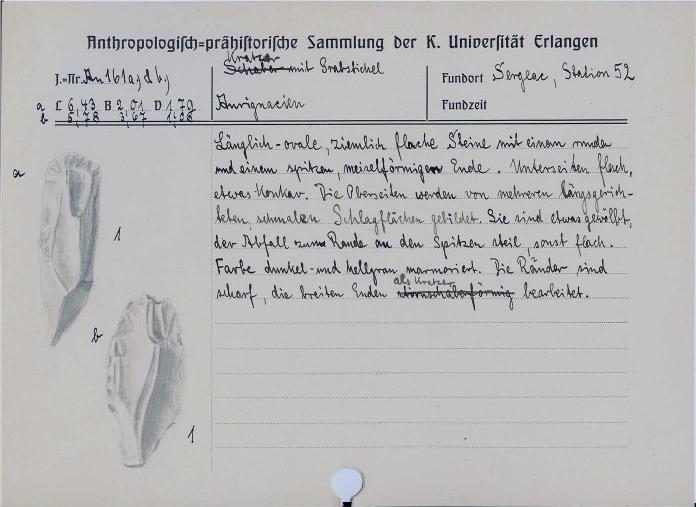 Anthropologisch=prähistorische Sammlung der K. Universität Erlangen
Kratzer
J.=Nr. An 161a) & b) Schaber mit Grabstichel Fundort Sergeac, Station 52
a L 6,43 B 2,01 D 1,70 Aurignacien Fundzeit
b 5,78 3,67 1,08
Länglich-ovale, ziemlich flache Steine mit einem runden
und einem spitzen, meiselförmigen Ende. Unterseiten flach,
etwas konkav. Die Oberseiten werden von mehreren längsgerich-
teten, schmalen Schlagflächen gebildet. Sie sind etwas gewölbt,
der Abfall zum Rande an den Spitzen steil, sonst flach.
Farbe dunkel- und hellgrau marmoriert. Die Ränder sind
als Kratzer
scharf, die breiten Enden bearbeitet.
a
1
b
1